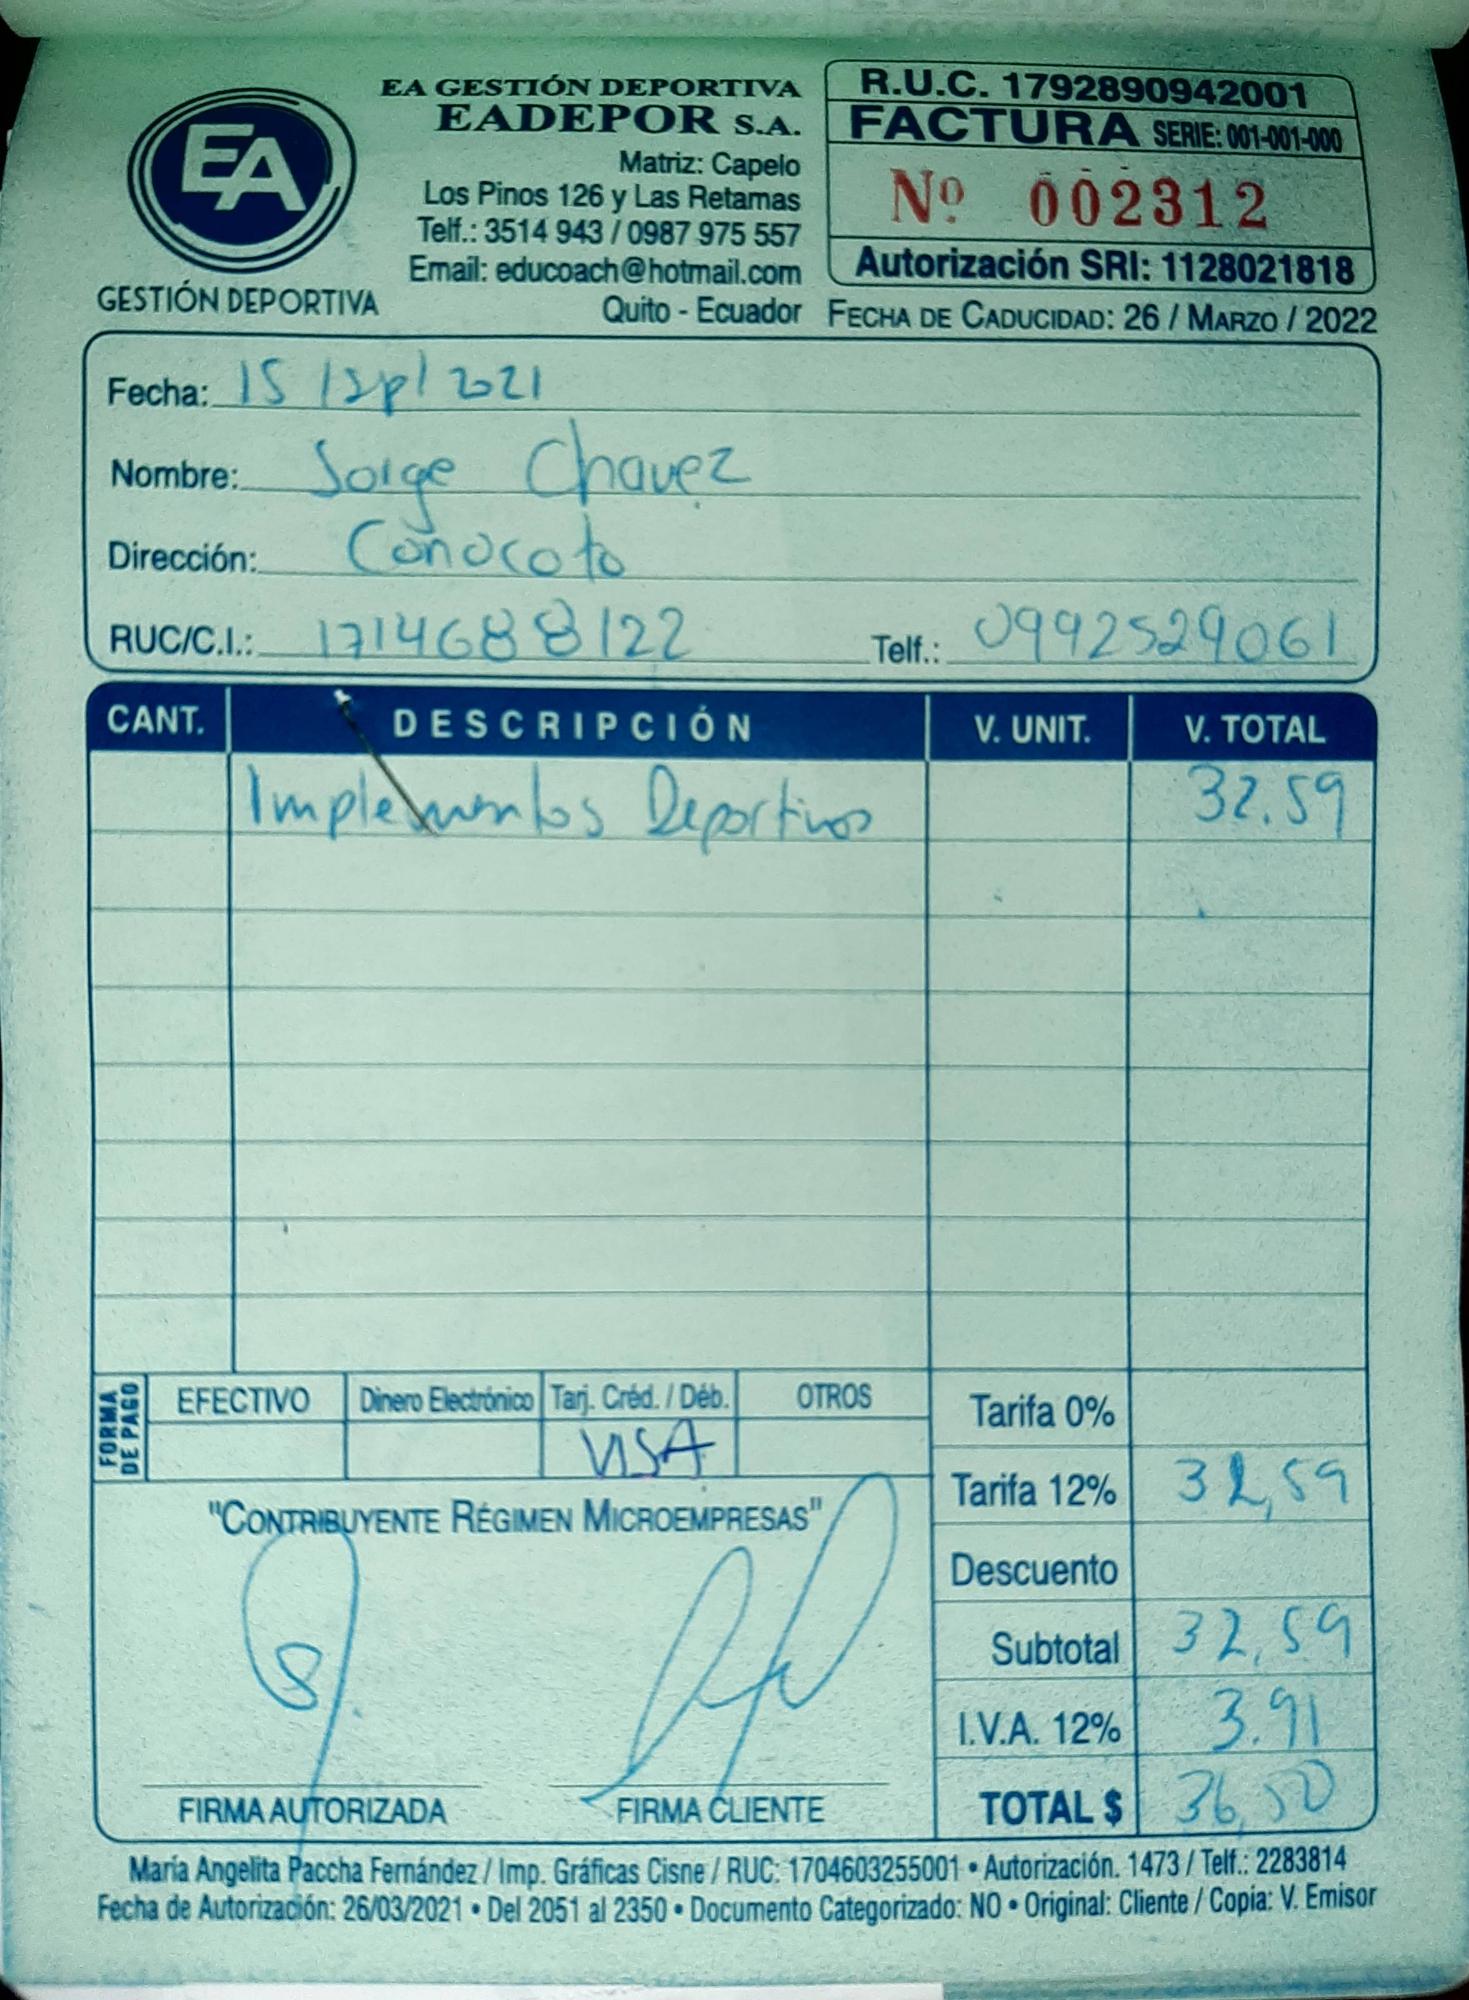 EA
GESTIÓN DEPORTIVA
EA GESTIÓN DEPORTIVA
EADEPOR S.A.
Matriz: Capelo
Los Pinos 126 y Las Retamas
Telf.: 3514 943 / 0987 975 557
Email: educoach@hotmail.com
Quito - Ecuador
R.U.C. 1792890942001
FACTURA SERIE: 001-001-000
Nº 002312
Autorización SRI: 1128021818
FECHA DE CADUCIDAD: 26 / MARZO / 2022
Fecha: 15 / sep / 2021
Nombre: Jorge Chavez
Dirección: Conocoto
RUC/C.I.: 1714688122 Telf.: 0992529061
CANT. DESCRIPCIÓN V. UNIT. V. TOTAL
Implementos Deportivos 32.59
FORMA DE PAGO
EFECTIVO Dinero Electrónico Tarj. Créd. / Déb. OTROS
VISA
Tarifa 0%
Tarifa 12% 32,59
Descuento
Subtotal 32,59
I.V.A. 12% 3.91
TOTAL $ 36,50
"CONTRIBUYENTE RÉGIMEN MICROEMPRESAS"
FIRMA AUTORIZADA FIRMA CLIENTE
María Angelita Paccha Fernández / Imp. Gráficas Cisne / RUC: 1704603255001 • Autorización. 1473 / Telf.: 2283814
Fecha de Autorización: 26/03/2021 • Del 2051 al 2350 • Documento Categorizado: NO • Original: Cliente / Copia: V. Emisor